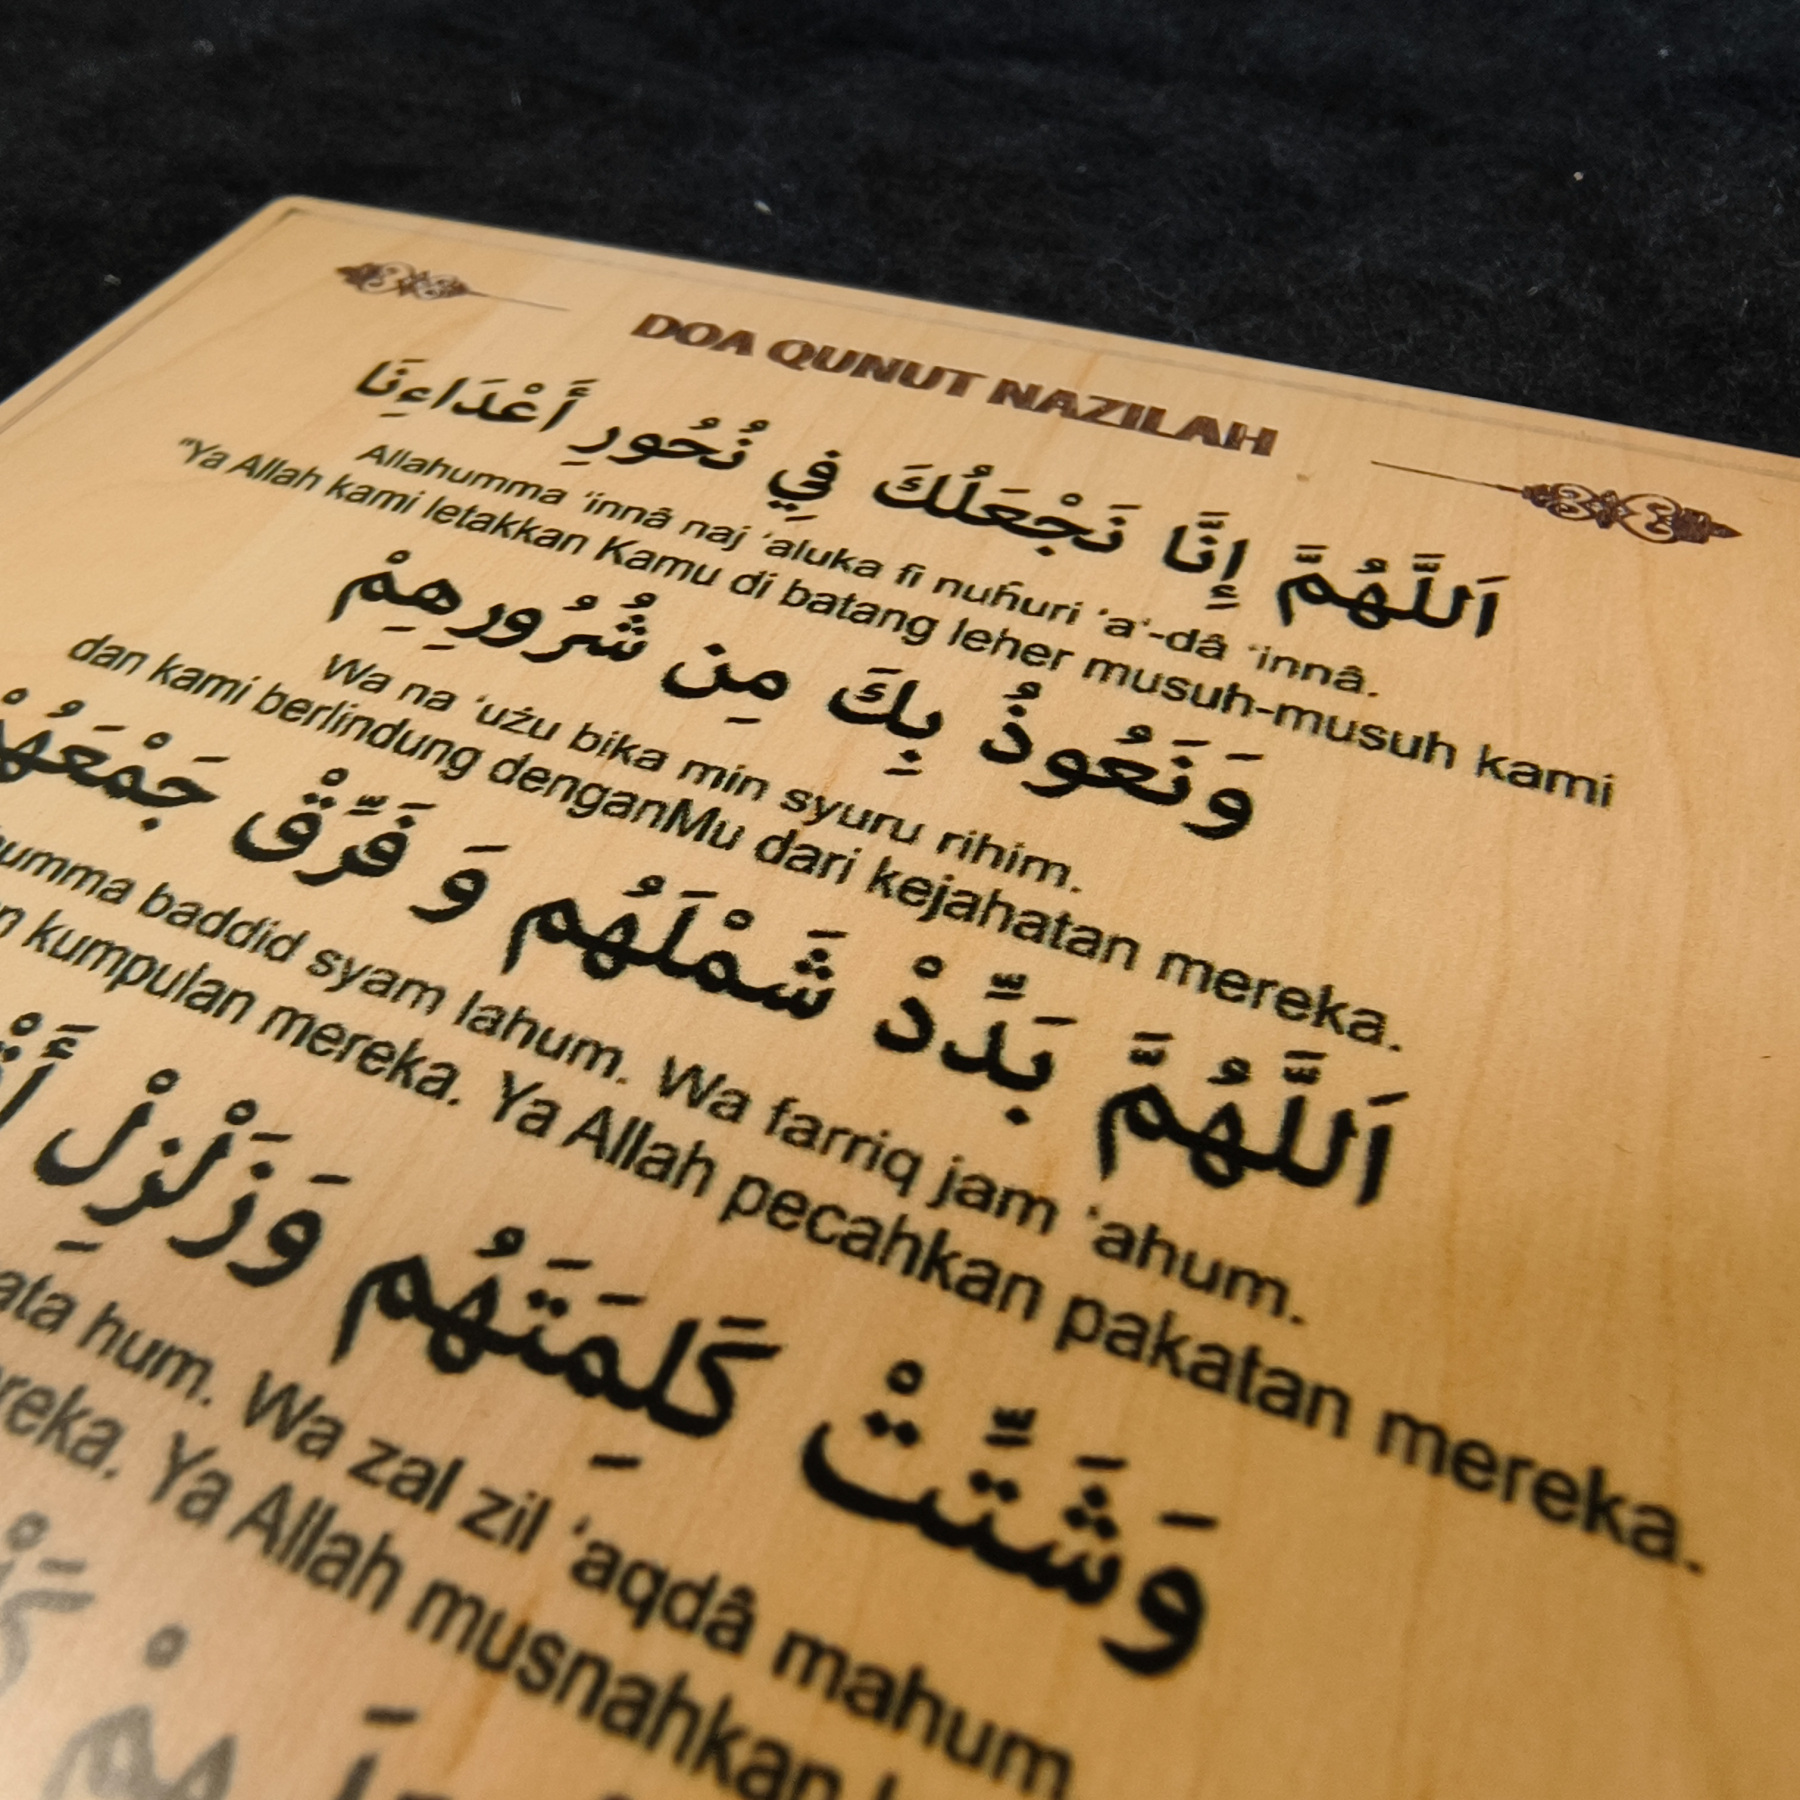 DOA QUNUT NAZILAH
اَللَّهُمَّ إِنَّا نَجْعَلُكَ فِي نُحُورِ أَعْدَاءِنَا
Allahumma 'innâ naj 'aluka fi nuĥuri 'a'-dâ 'innâ.
"Ya Allah kami letakkan Kamu di batang leher musuh-musuh kami
وَنَعُوذُ بِكَ مِن شُرُورِهِمْ
Wa na 'użu bika min syuru rihim.
dan kami berlindung denganMu dari kejahatan mereka.
اَللَّهُمَّ بَدِّدْ شَمْلَهُم وَ فَرِّقْ جَمْعَهُمْ
baddid syam lahum. Wa farriq jam 'ahum.
kumpulan mereka. Ya Allah pecahkan pakatan mereka.
وَشَتِّتْ كَلِمَتَهُم وَزَلْزِلْ
hum. Wa zal zil 'aqdâ mahum
Ya Allah musnahkan